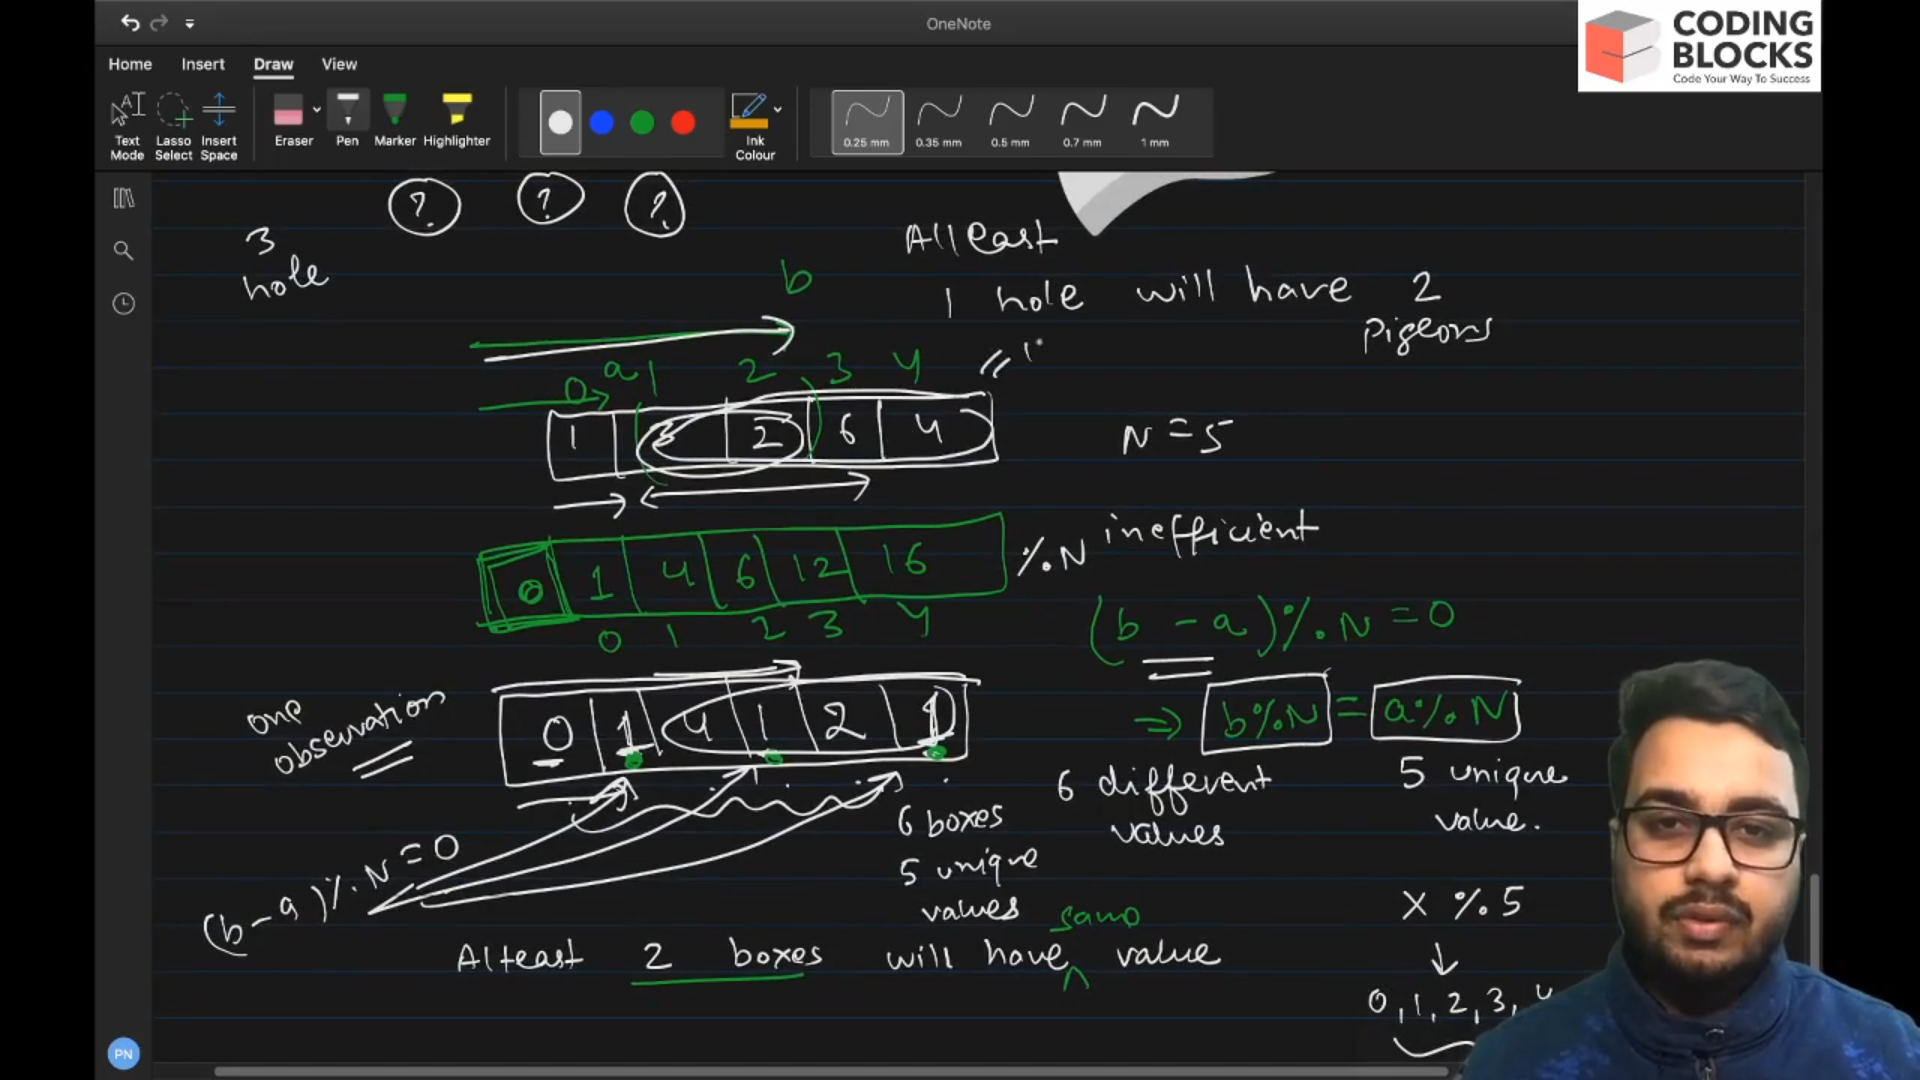 OneNote
CODING
BLOCKS
Code Your Way To Success
Home Insert Draw View
Text Mode
Lasso Select
Insert Space
Eraser
Pen
Marker
Highlighter
Ink Colour
0.25 mm
0.35 mm
0.5 mm
0.7 mm
1 mm
? ? ?
3
hole
Atleast
1 hole will have 2
pigeons
b
0 a 1 2 3 4
1 3 2 6 4
N = 5
0 1 4 6 12 16
%N inefficient
0 1 2 3 4
(b - a) % N = 0
one
observation
0 1 4 1 2 1
⇒ b%N = a%N
6 different
values
5 unique
value.
6 boxes
5 unique
values
(b-a) % N = 0
x % 5
↓
0, 1, 2, 3, 4
same
Atleast 2 boxes will have ^ value
PN